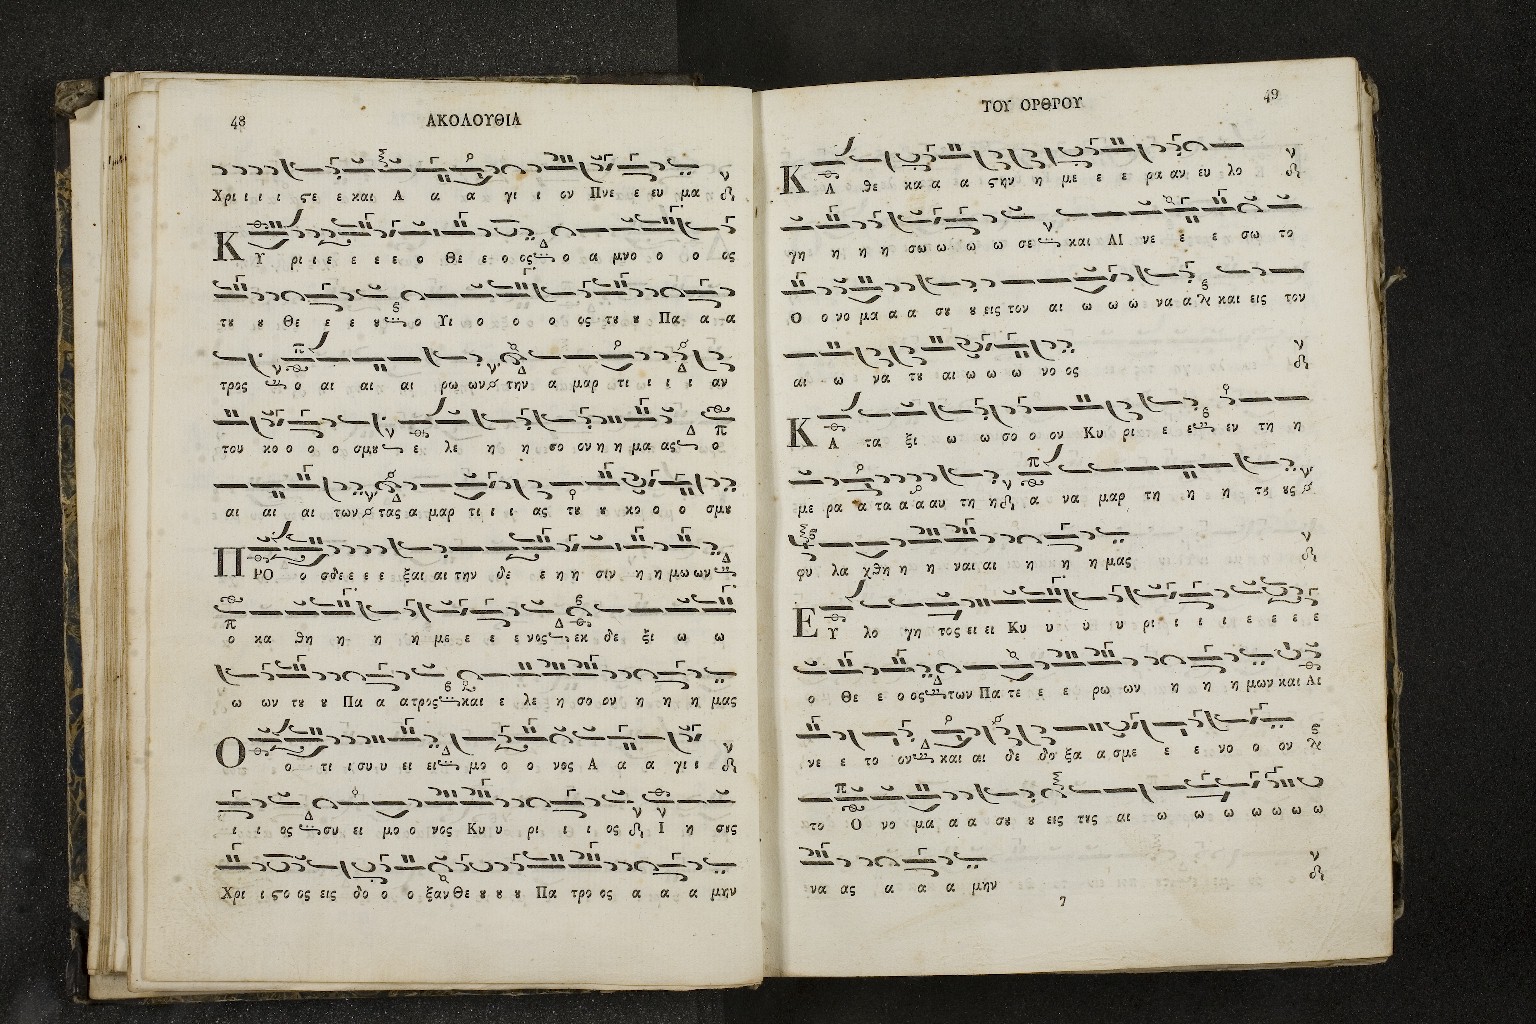 48
ΑΚΟΛΟΥΘΙΑ
Χρι ι ι ι ςε ε και Α α α γι ι ον Πνε ε ευ μα
Κ
Υ ρι ι ε ε ε ε ο Θε ε ο ος ο α μνο ο ο ος
τȣ ȣ Θε ε ε ȣ ο Υι ο ο ο ο ος τȣ ȣ Πα α α
τρος ο αι αι αι ρω ων την α μαρ τι ι ι ι αν
του κο ο ο ο σμȣ ε λε η η σο ον η η μα ας ο
αι αι αι των τας α μαρ τι ι ι ας τȣ ȣ κο ο ο σμȣ
Π
ΡΟ ο σδε ε ε ε ξαι αι την δε ε η η σιν η η μω ων
ο κα θη η η η με ε ε ε νος εκ δε ξι ω ω
ω ων τȣ ȣ Πα α α τρος και ε λε η σο ον η η η μας
Ο
ο τι ι συ υ ει ει μο ο ο νος Α α α γι ι
ι ι ος συ ει μο ο νος Κυ υ ρι ι ι ος Ι η σȣς
Χρι ι ςο ος εις δο ο ο ξαν Θε ȣ ȣ ȣ Πα τρο ος α α α μην
ΤΟΥ ΟΡΘΡΟΥ
49
Κ
Α θε κα α α ςην η με ε ε ρα αν ευ λο
γη η η η σω ω ω ω σε και ΑΙ νε ε ε σω το
Ο ο νο μα α α σȣ ȣ εις τον αι ω ω ω να α και εις τον
αι ω να τȣ αι ω ω ω νο ος
Κ
Α τα ξι ω ω σο ο ον Κυ ρι ε ε εν τη η
με ρα α τα α α αυ τη η α να μαρ τη η η τȣ ȣς
φυ λα χθη η η ναι αι η η η μας
Ε
Υ λο γη τος ει ει Κυ υ υ υ ρι ι ι ι ε ε ε ε
ο Θε ε ο ος των Πα τε ε ε ρω ων η η η μων και ΑΙ
νε ε το ον και αι δε δο ξα α σμε ε ε νο ο ον
το Ο νο μα α α σȣ ȣ εις τȣς αι ω ω ω ω ω ω ω
να ας α α α μην
7